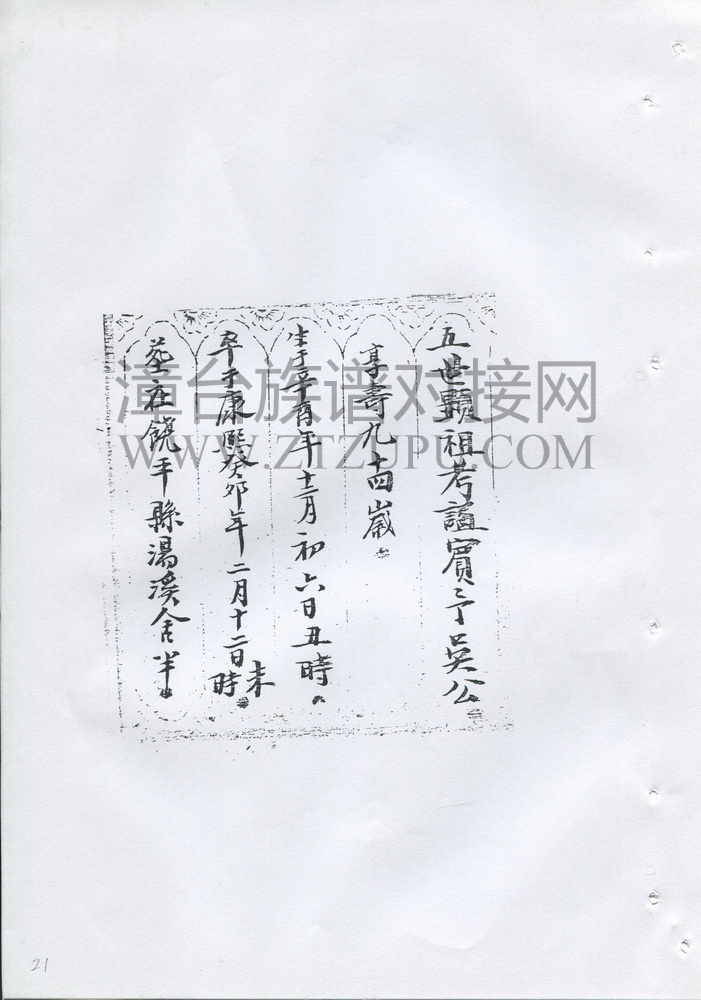 五世顯祖考諡賓予吳公
享壽九十四歲
生于辛酉年十二月初六日丑時
卒于康熙癸卯年二月十二日未時
塋在饒平縣湯溪舍半
漳台族谱对接网
WWW.ZTZUPU.COM
21